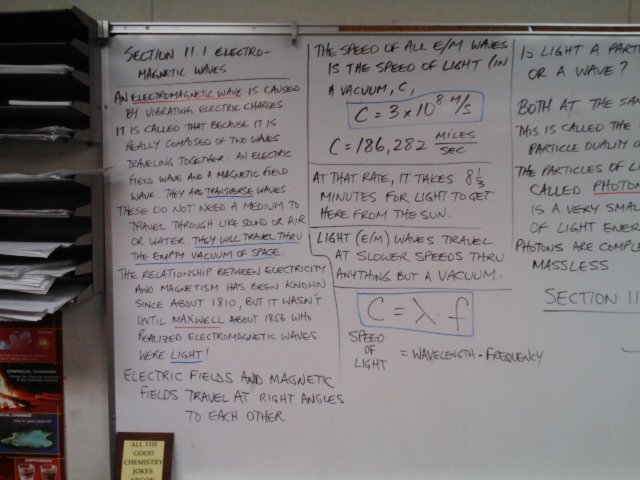 SECTION 11.1 ELECTRO-
MAGNETIC WAVES
AN ELECTROMAGNETIC WAVE IS CAUSED
BY VIBRATING ELECTRIC CHARGES
IT IS CALLED THAT BECAUSE IT IS
REALLY COMPOSED OF TWO WAVES
TRAVELING TOGETHER: AN ELECTRIC
FIELD WAVE AND A MAGNETIC FIELD
WAVE. THEY ARE TRANSVERSE WAVES.
THESE DO NOT NEED A MEDIUM TO
TRAVEL THROUGH LIKE SOUND OR AIR
OR WATER THEY WILL TRAVEL THRU
THE EMPTY VACUUM OF SPACE.
THE RELATIONSHIP BETWEEN ELECTRICITY
AND MAGNETISM HAS BEEN KNOWN
SINCE ABOUT 1810, BUT IT WASN'T
UNTIL MAXWELL ABOUT 1856 WHO
REALIZED ELECTROMAGNETIC WAVES
WERE LIGHT!
ELECTRIC FIELDS AND MAGNETIC
FIELDS TRAVEL AT RIGHT ANGLES
TO EACH OTHER
THE SPEED OF ALL E/M WAVES
IS THE SPEED OF LIGHT (IN
A VACUUM, C,
C = 3×10⁸ M/S
C = 186,282 MILES/SEC
AT THAT RATE, IT TAKES 8 1/3
MINUTES FOR LIGHT TO GET
HERE FROM THE SUN.
LIGHT (E/M) WAVES TRAVEL
AT SLOWER SPEEDS THRU
ANYTHING BUT A VACUUM.
C = λ · f
SPEED OF LIGHT = WAVELENGTH · FREQUENCY
IS LIGHT A PART
OR A WAVE?
BOTH AT THE SAM
THIS IS CALLED THE
PARTICLE DUALITY O
THE PARTICLES OF LI
CALLED PHOTO
IS A VERY SMAL
OF LIGHT ENER
PHOTONS ARE COMPLE
MASSLESS.
SECTION 11
CHEMICAL CHANGES
CAL CHANGE
DIFFUSION
ALL THE
GOOD
CHEMISTRY
JOKES
ARGON